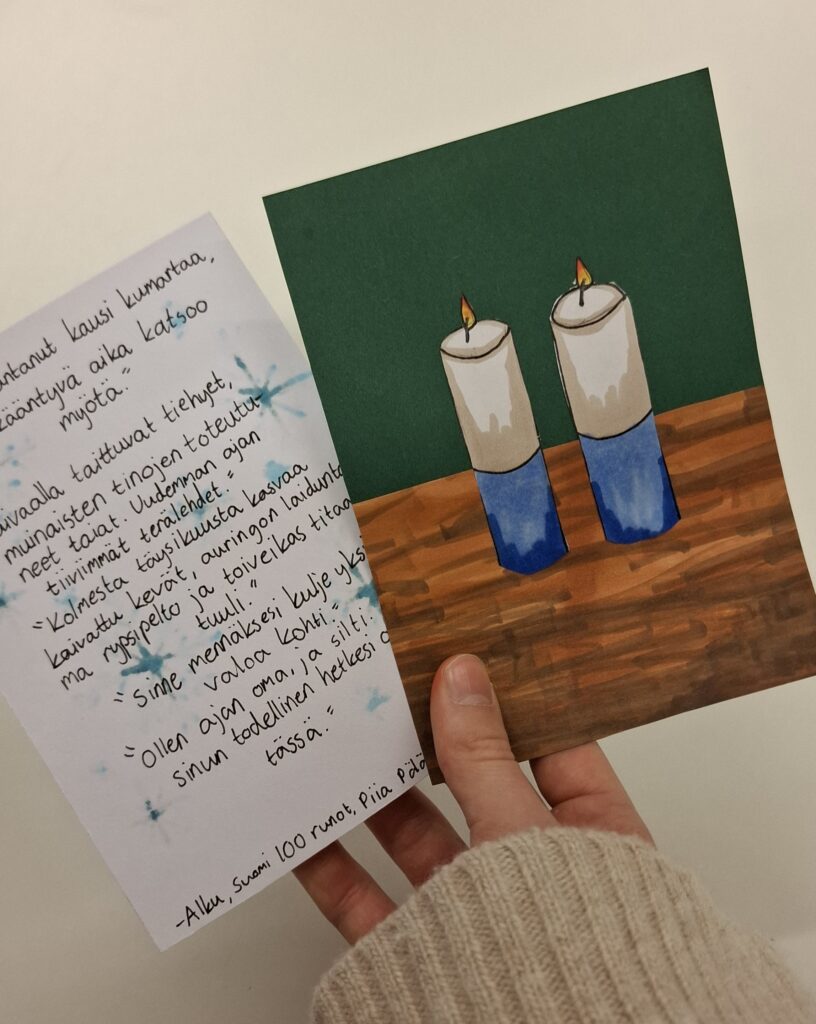 kausi kumartaa,
kääntyvä aika katsoo
myötä."
taivaalla taittuvat tiehyet,
muinaisten tinojen toteutu-
neet taiat. Uudemman ajan
tiiviimmät terälehdet."
"Kolmesta täysikuusta kasvaa
kaivattu kevät, auringon
ma rypsipelto ja toiveikas
tuuli."
"Sinne mennäksesi kulje
valoa kohti."
"Ollen ajan oma, ja silti
sinun todellinen hetkesi
tässä."
-Alku, Suomi 100 runot, Piia